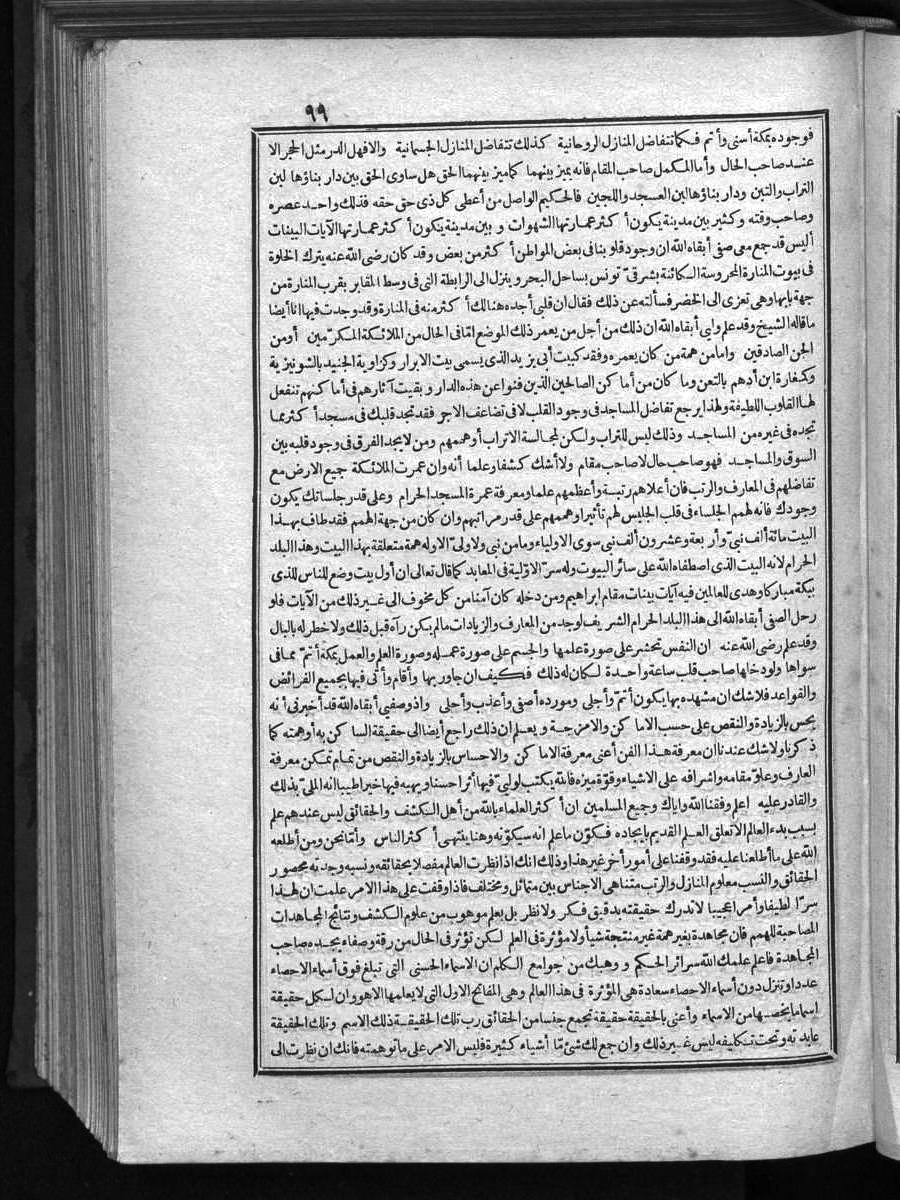 ٩٩
فوجوده بمكة أسنى وأتم فكما تتفاضل المنازل الروحانية كذلك تتفاضل المنازل الجسمانية والا فهل الدر مثل الحجر الا
عند صاحب الحال وأما المكمل صاحب المقام فانه يميز بينهما كما ميز بينهما الحق هل ساوى الحق بين دار بناؤها لبن
التراب والتبن ودار بناؤها لبن العسجد واللجين فالحكيم الواصل من أعطى كل ذى حق حقه فذلك واحد عصره
وصاحب وقته وكثير بين مدينة يكون أكثر عمارتها الشهوات وبين مدينة يكون أكثر عمارتها الآيات البينات
أليس قد جمع معى صفى أبقاه الله ان وجود قلوبنا فى بعض المواطن أكثر من بعض وقد كان رضى الله عنه يترك الخلوة
فى بيوت المنارة المحروسة الكائنة بشرقى تونس بساحل البحر وينزل الى الرابطة التى فى وسط المقابر بقرب المنارة من
جهة بابها وهى تعزى الى الخضر فسألته عن ذلك فقال ان قلبى أجده هنالك أكثر منه فى المنارة وقد وجدت فيها انا أيضا
ما قاله الشيخ وقد علم وليى أبقاه الله ان ذلك من أجل من يعمر ذلك الموضع امّا فى الحال من الملائكة المكرّمين أو من
الجن الصادقين واما من همة من كان يعمره وفقد كبيت أبى يزيد الذى يسمى بيت الابرار وكزاوية الجنيد بالشونيزية
وكمغارة ابن أدهم بالتعن وما كان من أماكن الصالحين الذين فنوا عن هذه الدار وبقيت آثارهم فى أماكنهم تنفعل
لها القلوب اللطيفة ولهذا يرجع تفاضل المساجد فى وجود القلب لا فى تضاعف الاجر فقد تجد قلبك فى مسجد أكثر مما
تجده فى غيره من المساجد وذلك ليس للتراب ولكن لمجالسة الاتراب أو هممهم ومن لا يجد الفرق فى وجود قلبه بين
السوق والمساجد فهو صاحب حال لا صاحب مقام ولا أشك كشفا وعلما أنه وان عمرت الملائكة جميع الارض مع
تفاضلهم فى المعارف والرتب فان أعلاهم رتبة وأعظمهم علما ومعرفة عمرة المسجد الحرام وعلى قدر جلسائك يكون
وجودك فانه لهمم الجلساء فى قلب الجليس لهم تأثيرا وهممهم على قدر مراتبهم وان كان من جهة الهمم فقد طاف بهذا
البيت مائة ألف نبىّ وأربعة وعشرون ألف نبى سوى الاولياء وما من نبى ولا ولىّ الا وله همة متعلقة بهذا البيت وهذا البلد
الحرام لانه البيت الذى اصطفاه الله على سائر البيوت وله سرّ الاوّلية فى المعابد كما قال تعالى ان أول بيت وضع للناس للذى
ببكة مباركا وهدى للعالمين فيه آيات بينات مقام ابراهيم ومن دخله كان آمنا من كل مخوف الى غير ذلك من الآيات فلو
رحل الصفى أبقاه الله الى هذا البلد الحرام الشريف لوجد من المعارف والزيادات مالم يكن رآه قبل ذلك ولا خطر له بالبال
وقد علم رضى الله عنه ان النفس تحشر على صورة علمها والجسم على صورة عمله وصورة العلم والعمل بمكة أتمّ مما فى
سواها ولو دخلها صاحب قلب ساعة واحدة لكان له ذلك فكيف ان جاور بها وأقام وأتى فيها بجميع الفرائض
والقواعد فلا شك ان مشهده بها يكون أتمّ وأجلى ومورده أصفى وأعذب وأحلى واذ وصفيى أبقاه الله قد أخبرنى أنه
يحس بالزيادة والنقص على حسب الاماكن والامزجة ويعلم ان ذلك راجع أيضا الى حقيقة الساكن به أو همته كما
ذكرنا ولا شك عندنا ان معرفة هذا الفن أعنى معرفة الاماكن والاحساس بالزيادة والنقص من تمام تمكن معرفة
العارف وعلوّ مقامه واشرافه على الاشياء وقوّة ميزه فالله يكتب لولىّ فيها أثرا حسنا ويهبه فيها خبرا طيبا انه الملىّ بذلك
والقادر عليه اعلم وفقنا الله واياك وجميع المسلمين ان أكثر العلماء بالله من أهل الكشف والحقائق ليس عندهم علم
بسبب بدء العالم الا تعلق العلم القديم بايجاده فكوّن ما علم انه سيكوّنه وهنا ينتهى أكثر الناس وأمّا نحن ومن أطلعه
الله على ما أطلعنا عليه فقد وقفنا على أمور أخر غير هذا وذلك انك اذا نظرت العالم مفصلا بحقائقه ونسبه وجدته محصور
الحقائق والنسب معلوم المنازل والرتب متناهى الاجناس بين متماثل ومختلف فاذا وقفت على هذا الامر علمت ان لهذا
سرّا لطيفا وأمرا عجيبا لا تدرك حقيقته بدقيق فكر ولا نظر بل بعلم موهوب من علوم الكشف ونتائج المجاهدات
المصاحبة للهمم فان مجاهدة بغير همة غير منتجة شيأ ولا مؤثرة فى العلم لكن تؤثر فى الحال من رقة وصفاء يجده صاحب
المجاهدة فاعلم علمك الله سرائر الحكيم ووهبك من جوامع الكلم ان الاسماء الحسنى التى تبلغ فوق أسماء الاحصاء
عددا وتنزل دون أسماء الاحصاء سعادة هى المؤثرة فى هذا العالم وهى المفاتح الاول التى لا يعلمها الا هو وان لكل حقيقة
اسما ما يخصها من الاسماء وأعنى بالحقيقة حقيقة تجمع جنسا من الحقائق رب تلك الحقيقة ذلك الاسم وتلك الحقيقة
عابدته وتحت تكليفه ليس غير ذلك وان جمع لك شئ مّا أشياء كثيرة فليس الامر على ما توهمته فانك ان نظرت الى